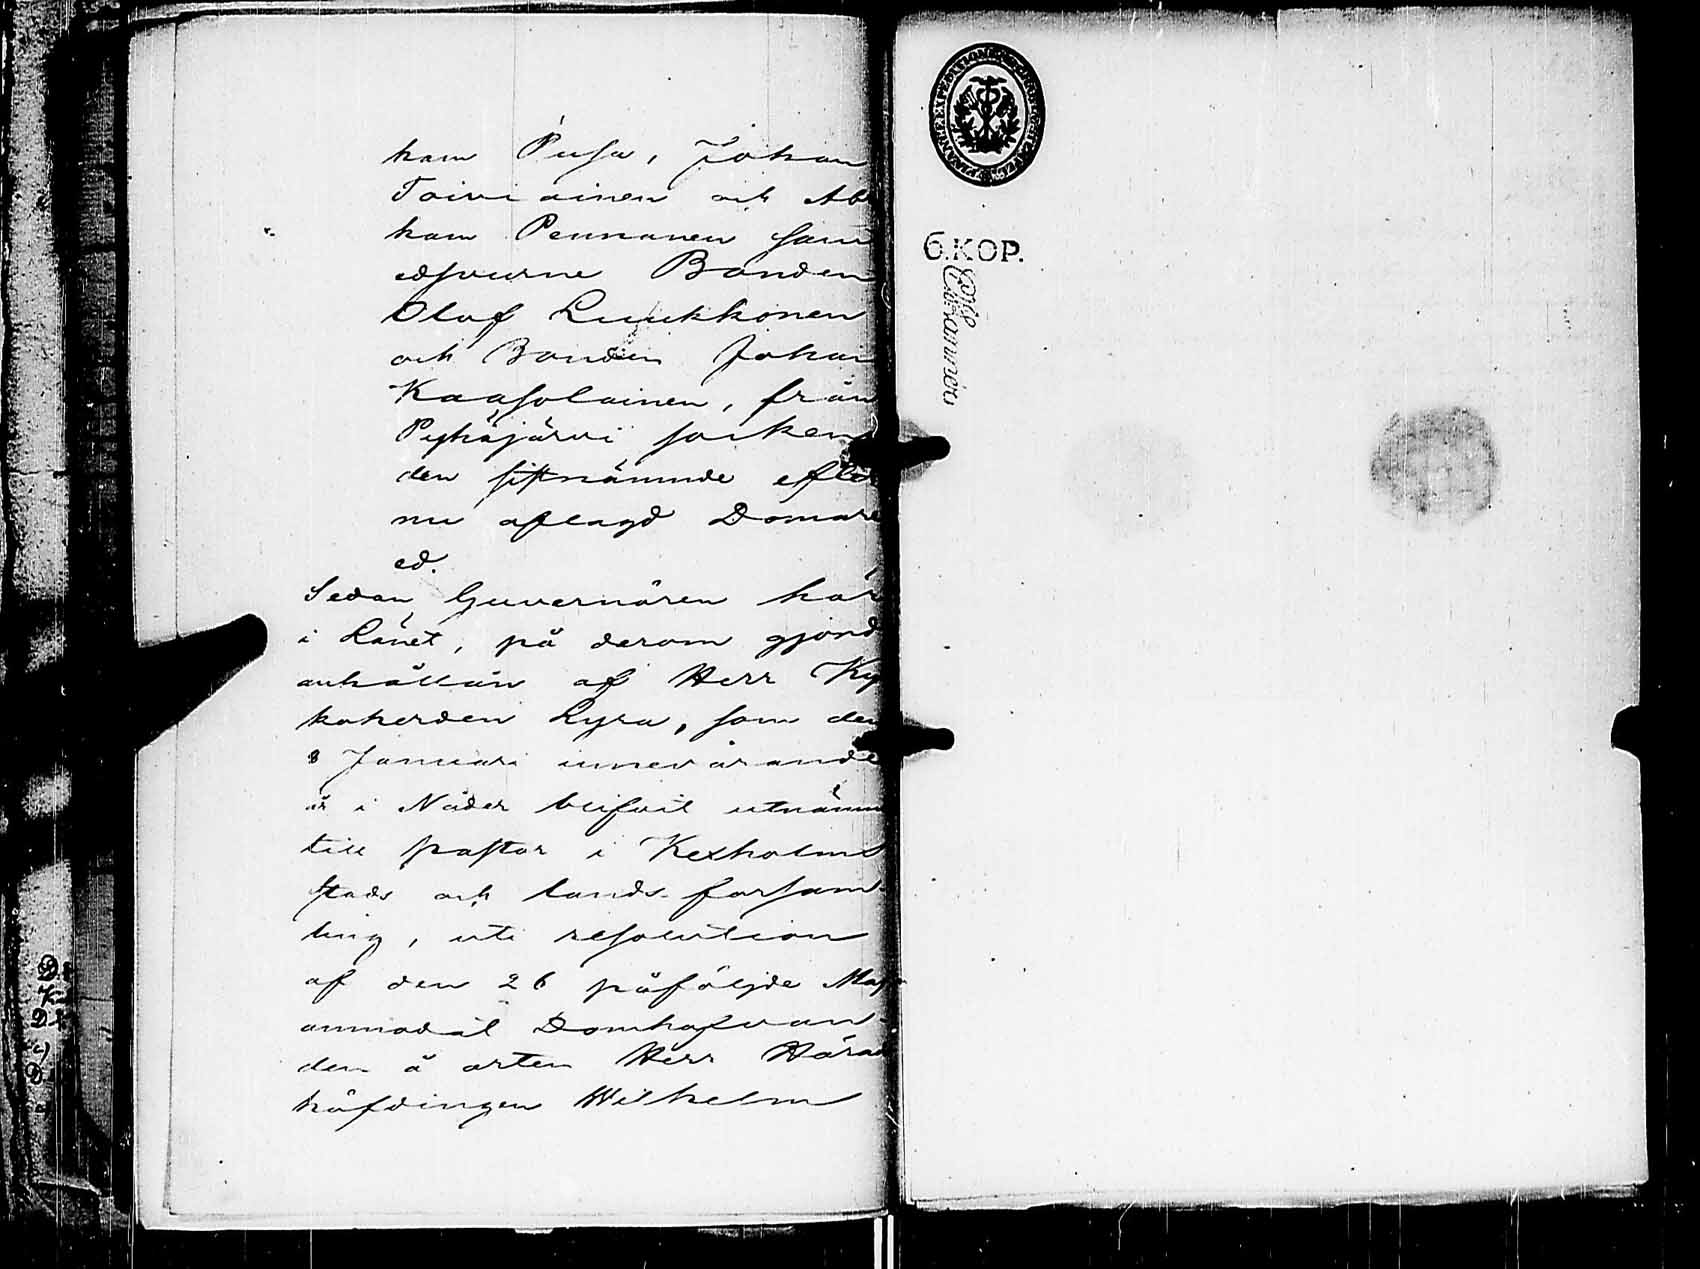 ham Pusa, Johan
Toiviainen och Ab
ham Pennanen sam
edsvurne Bonden
Olof Luukkonen
och Bonden Johan
Kaasolainen, från
Pyhäjärvi socken
den sistnämnde efter
nu aflagd Domare
ed.
Sedan Guvernören här
i Länet, på derom gjord
anhållan af Herr Ky
koherden Lyra, som den
8 Januari innevarande
år i Nåder blifvit utnämn
till pastor i Kexholms
stads och lands-försam
ling, uti resolution
af den 26 påföljde Maj
anmodat Domhafvan-
den å orten Herr Härad
höfdingen Wilhelm
6.KOP.